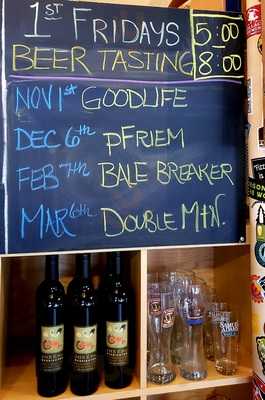 1st FRIDAYS 5:00
BEER TASTING 8:00
NOV 1st GOODLIFE
DEC 6th pFRIEM
FEB 7th BALE BREAKER
MAR 6th DOUBLE MTN.
SAMUEL
ADAMS